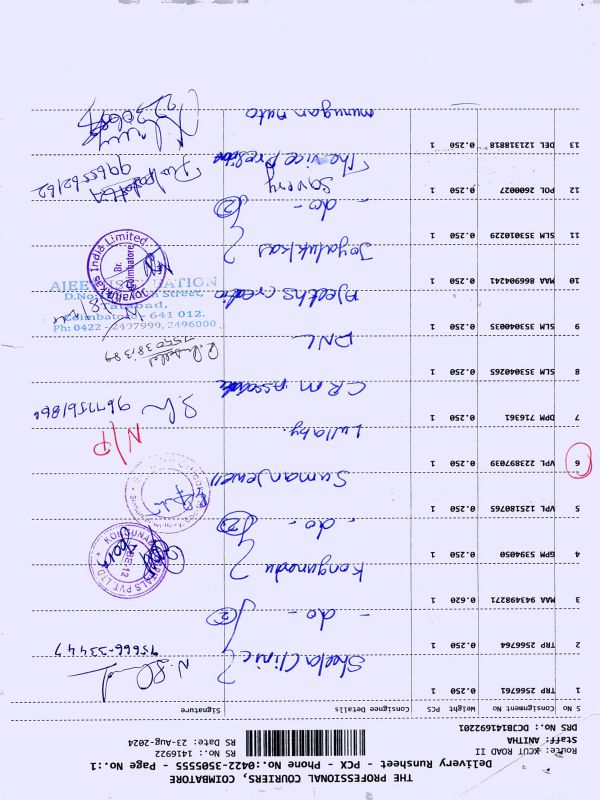 THE PROFESSIONAL COURIERS, COIMBATORE
Delivery Runsheet - PCX - Phone No.:0422-3505555 - Page No.:1
Route: XCUT ROAD II
Staff: ANITHA
DRS No.: DCJB1416992201
RS No.: 1416922
RS Date: 23-Aug-2024
S No Consignment No Weight PCS Consignee Details Signature
1 TRP 2566761 0.250 1 Sheela Clinic
2 TRP 2566764 0.250 1 - do - 2 95666-23447
3 MAA 943498271 0.620 1 Konganadu
4 GPM 5394050 0.250 1 - do - 2
5 VPL 125180765 0.250 1 Suman Jewell
6 VPL 223897039 0.250 1 Lullaby. N/P
7 DPM 716361 0.250 1 CRM
8 SLM 353040265 0.250 1 DNL
9 SLM 353040035 0.250 1 Ajeeths creatio
Coimbatore - 641 012.
Ph: 0422 - 2497999, 2496000
10 MAA 866904241 0.250 1 Joyalukkas
Joyalukkas India Limited
Br.
Coimbatore
11 SLM 353010229 0.250 1 - do - 2
12 POL 2600027 0.250 1 Savery
The vice Presid 9965562162
13 DEL 121318818 0.250 1 murugan auto